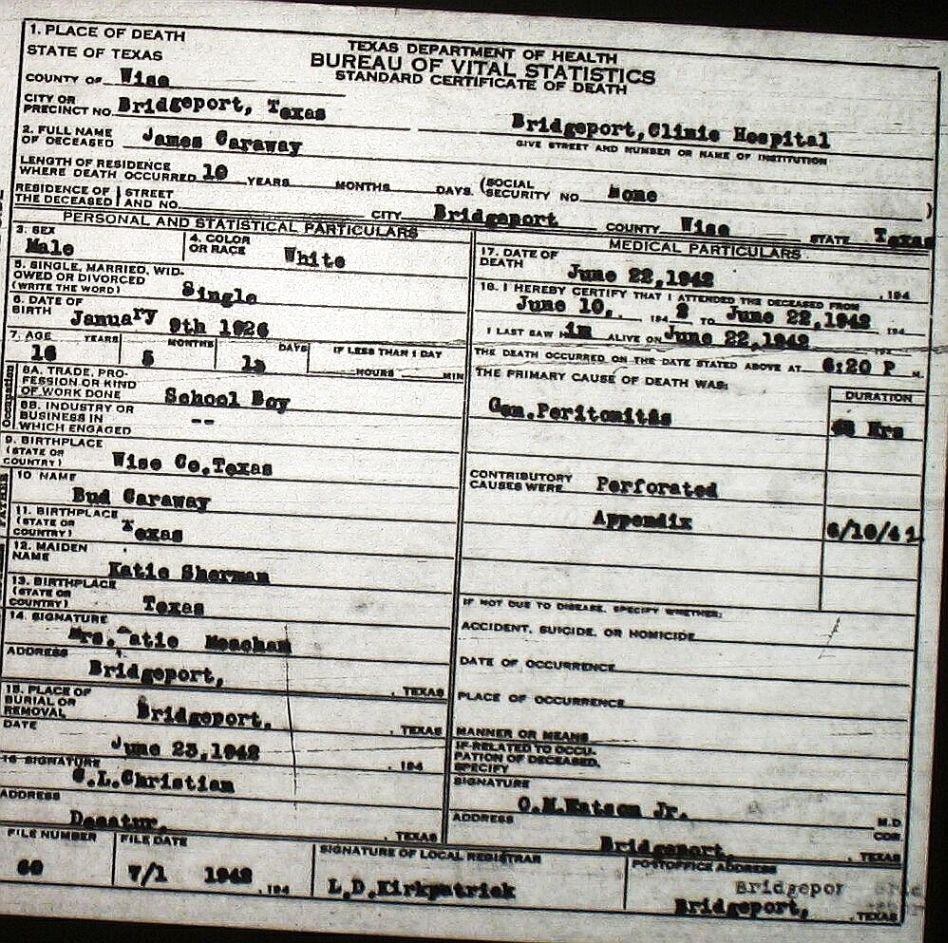 1. PLACE OF DEATH
STATE OF TEXAS
TEXAS DEPARTMENT OF HEALTH
BUREAU OF VITAL STATISTICS
STANDARD CERTIFICATE OF DEATH
COUNTY OF Wise
CITY OR PRECINCT NO. Bridgeport, Texas
Bridgeport,Clinic Hospital
GIVE STREET AND NUMBER OR NAME OF INSTITUTION
2. FULL NAME OF DECEASED James Caraway
LENGTH OF RESIDENCE WHERE DEATH OCCURRED 10 YEARS MONTHS DAYS. (SOCIAL SECURITY NO None )
RESIDENCE OF THE DECEASED STREET AND NO. CITY Bridgeport COUNTY Wise STATE Texas
PERSONAL AND STATISTICAL PARTICULARS
3. SEX Male
4. COLOR OR RACE White
5. SINGLE, MARRIED, WIDOWED OR DIVORCED (WRITE THE WORD) Single
6. DATE OF BIRTH January 9th 1926
7. AGE 16 YEARS 5 MONTHS DAYS IF LESS THAN 1 DAY HOURS MIN
Occupation
8A. TRADE, PROFESSION OR KIND OF WORK DONE School Boy
8B. INDUSTRY OR BUSINESS IN WHICH ENGAGED --
9. BIRTHPLACE (STATE OR COUNTRY) Wise Co,Texas
FATHER
10 NAME Bud Caraway
11. BIRTHPLACE (STATE OR COUNTRY) Texas
12. MAIDEN NAME Katie Sherman
13. BIRTHPLACE (STATE OR COUNTRY) Texas
14. SIGNATURE Mrs. Katie Meacham
ADDRESS Bridgeport, , TEXAS
15. PLACE OF BURIAL OR REMOVAL Bridgeport, , TEXAS
DATE June 23,1942 , 194
16 SIGNATURE C.L.Christian
ADDRESS Decatur, , TEXAS
MEDICAL PARTICULARS
17. DATE OF DEATH June 22,1942 , 194
18. I HEREBY CERTIFY THAT I ATTENDED THE DECEASED FROM
June 10, 194 2 TO June 22,1942 194
I LAST SAW H im ALIVE ON June 22,1942
THE DEATH OCCURRED ON THE DATE STATED ABOVE AT 6:20 P M.
THE PRIMARY CAUSE OF DEATH WAS:
DURATION
Gen.Peritonitis Hrs
CONTRIBUTORY CAUSES WERE Perforated
Appendix
IF NOT DUE TO DISEASE, SPECIFY WHETHER:
ACCIDENT, SUICIDE, OR HOMICIDE
DATE OF OCCURRENCE
PLACE OF OCCURRENCE
MANNER OR MEANS
IF RELATED TO OCCUPATION OF DECEASED, SPECIFY
SIGNATURE O.M.Watson Jr. M.D.
ADDRESS COR.
Bridgeport, , TEXAS
FILE NUMBER 60
FILE DATE 7/1 1942 , 194
SIGNATURE OF LOCAL REGISTRAR L.D.Kirkpatrick
POSTOFFICE ADDRESS
Bridgepor
Bridgeport, , TEXAS